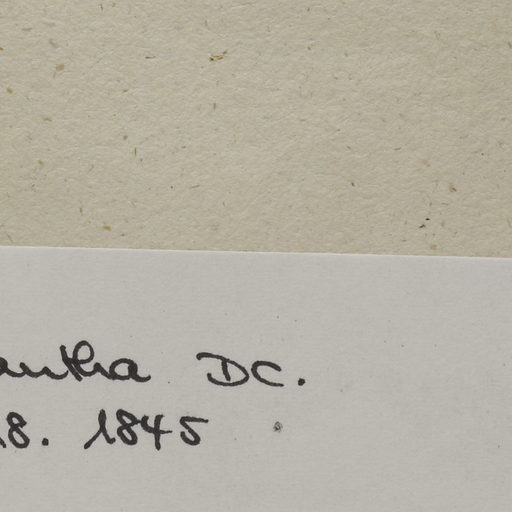 antha DC.
18. 1845